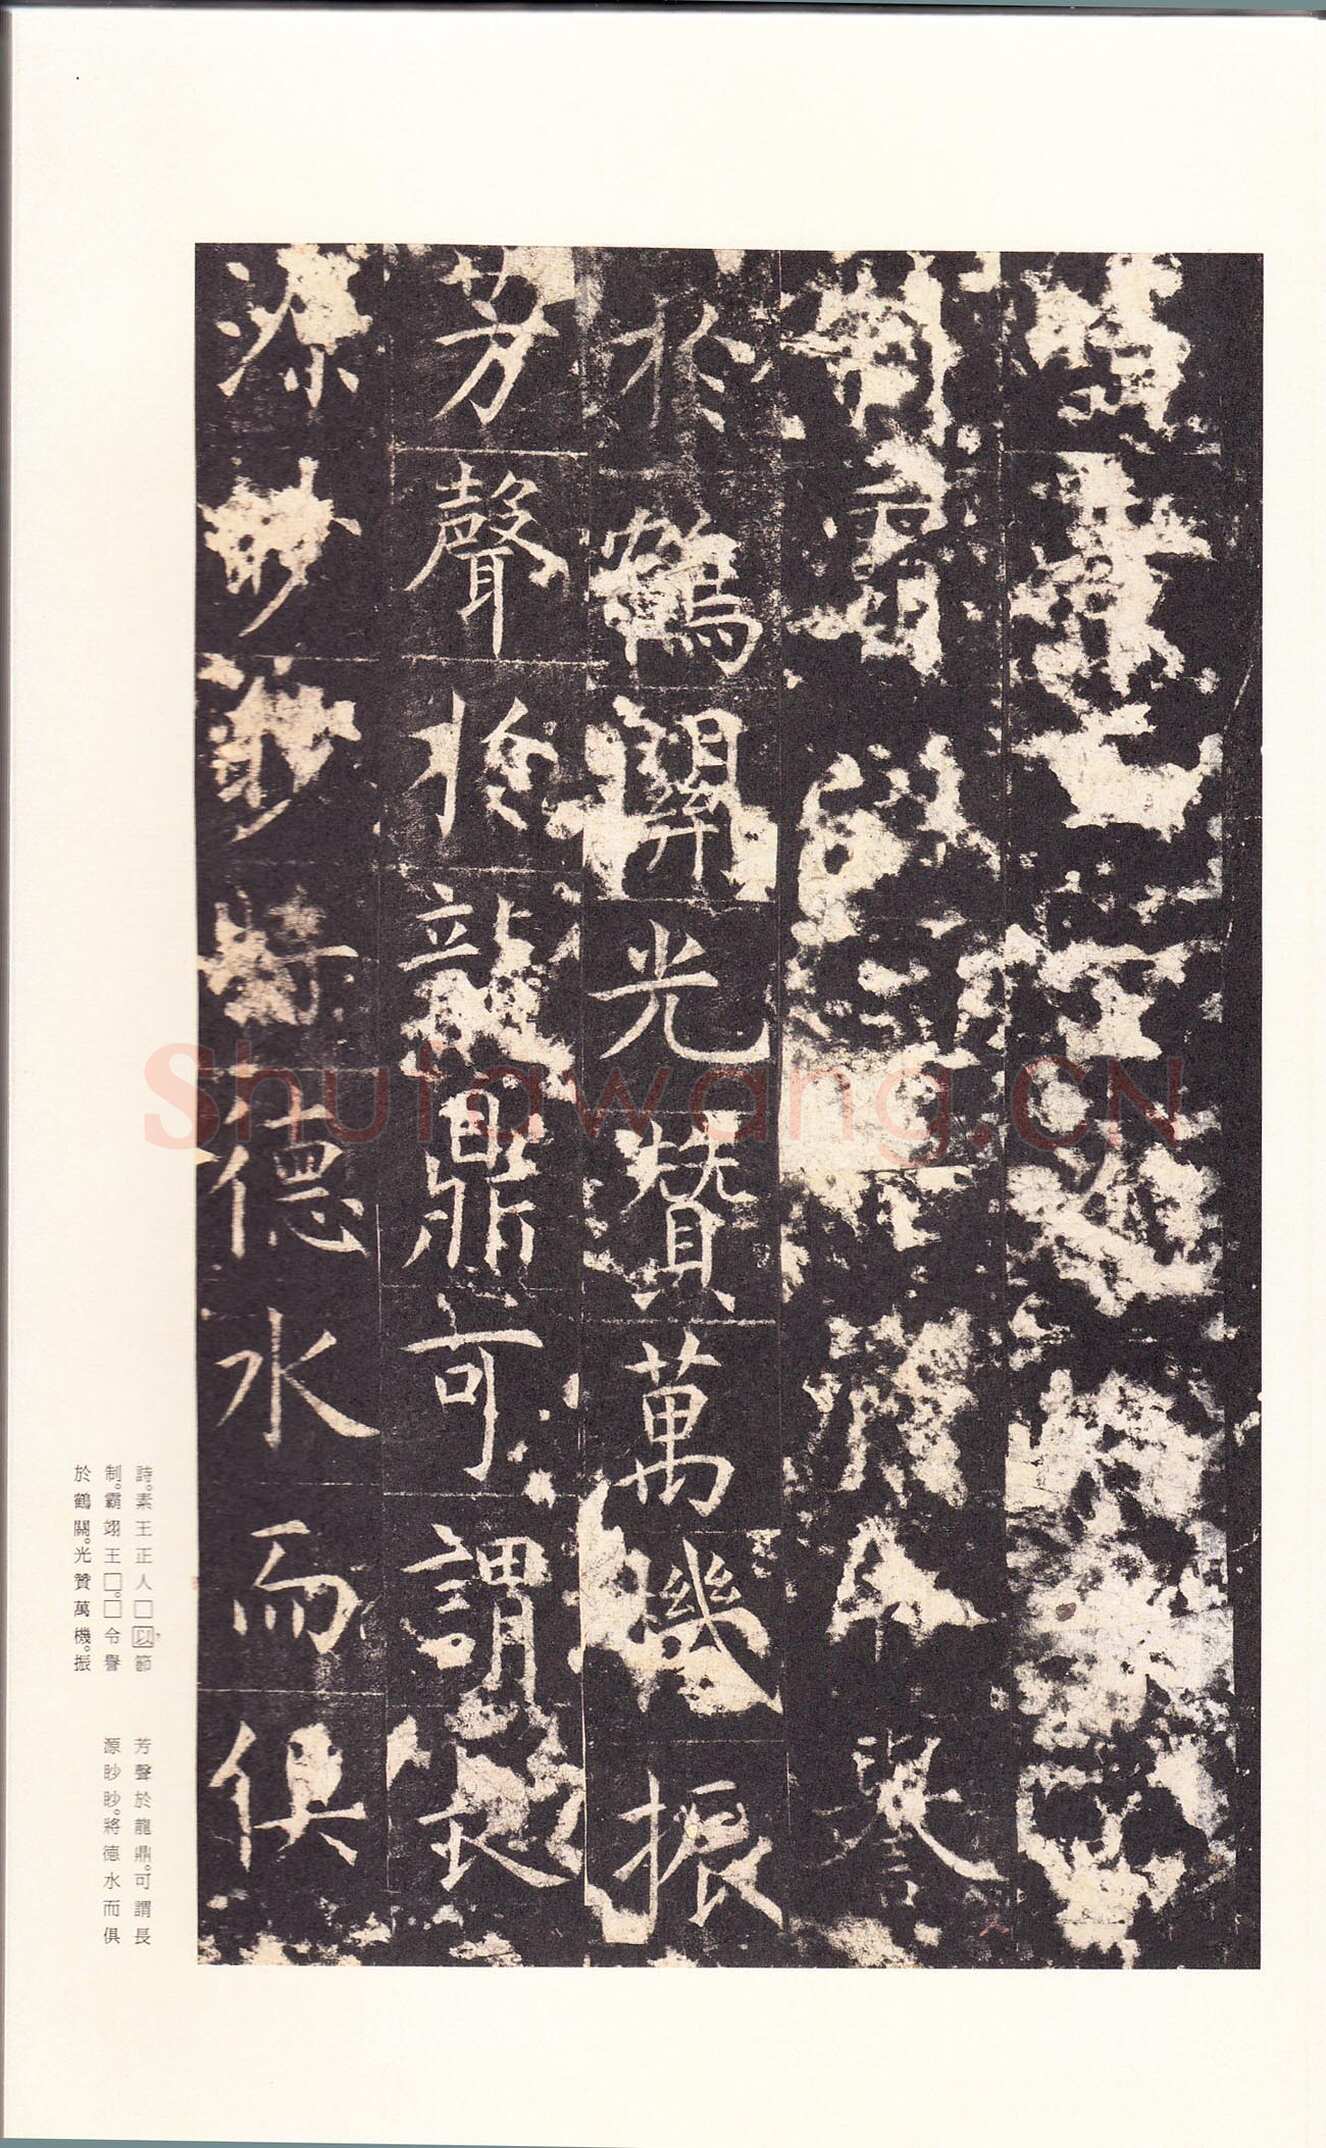 於鶴關光贊萬機振
芳聲於龍鼎可謂長
源眇眇將德水而俱
詩。素王正人□以節
制。霸翊王□。□令譽
於鶴關。光贊萬機。振
芳聲於龍鼎。可謂長
源眇眇。將德水而俱
Shufawang.CN